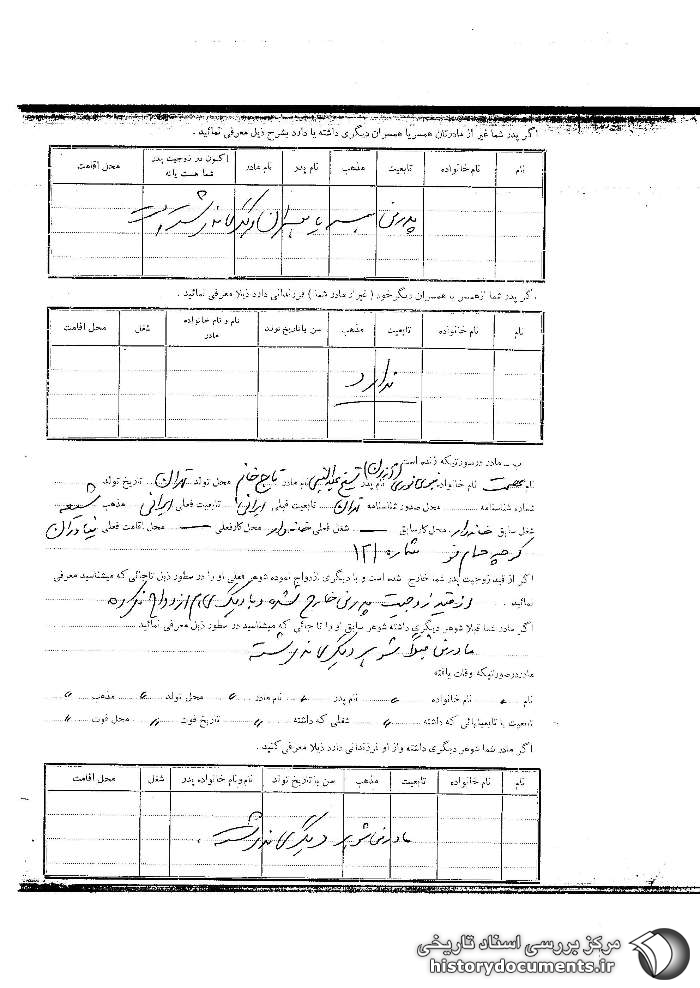 اگر پدر شما غیر از مادرتان همسر یا همسران دیگری داشته یا دارد بشرح ذیل معرفی نمائید .
نام نام خانواده تابعیت مذهب نام پدر نام مادر اکنون در زوجیت پدر شما هست یا نه محل اقامت
پدرم همسر یا همسران دیگری نداشته است
اگر پدر شما از همسر یا همسران دیگر خود ( غیر از مادر شما ) فرزندانی دارد ذیلا معرفی نمائید .
نام نام خانواده تابعیت مذهب سن یا تاریخ تولد نام و نام خانواده مادر شغل محل اقامت
ندارد
ب ـ مادر درصورتیکه زنده است
نام عصمت نام خانواده نوری نام پدر نام مادر تاج خانم محل تولد تهران تاریخ تولد
شماره شناسنامه محل صدور شناسنامه تهران تابعیت قبلی ایرانی تابعیت فعلی ایرانی مذهب شیعه
شغل سابق خانه‌دار محل کار سابق — شغل فعلی خانه‌دار محل کار فعلی — محل اقامت فعلی نیاوران
کوچه حمام نو شماره ۱۲۱
اگر از قید زوجیت پدر شما خارج شده است و با دیگری ازدواج نموده شوهر فعلی او را در سطور ذیل تا جائی که میشناسید معرفی
نمائید . از قید زوجیت پدرم خارج نشده و با دیگری هم ازدواج نکرده
اگر مادر شما قبلا شوهر دیگری داشته شوهر سابق او را تا جائی که میشناسید در سطور ذیل معرفی نمائید
مادرم قبلاً شوهر دیگری نداشته
مادر درصورتیکه وفات یافته
نام " نام خانواده " نام پدر " نام مادر " محل تولد " مذهب "
تابعیت یا تابعیتهائی که داشته " شغلی که داشته " تاریخ فوت " محل فوت "
اگر مادر شما شوهر دیگری داشته و از او فرزندانی دارد ذیلا معرفی کنید .
نام نام خانواده تابعیت مذهب سن یا تاریخ تولد نام و نام خانواده پدر شغل محل اقامت
مادرم شوهر دیگری نداشته .
مرکز بررسی اسناد تاریخی
historydocuments.ir